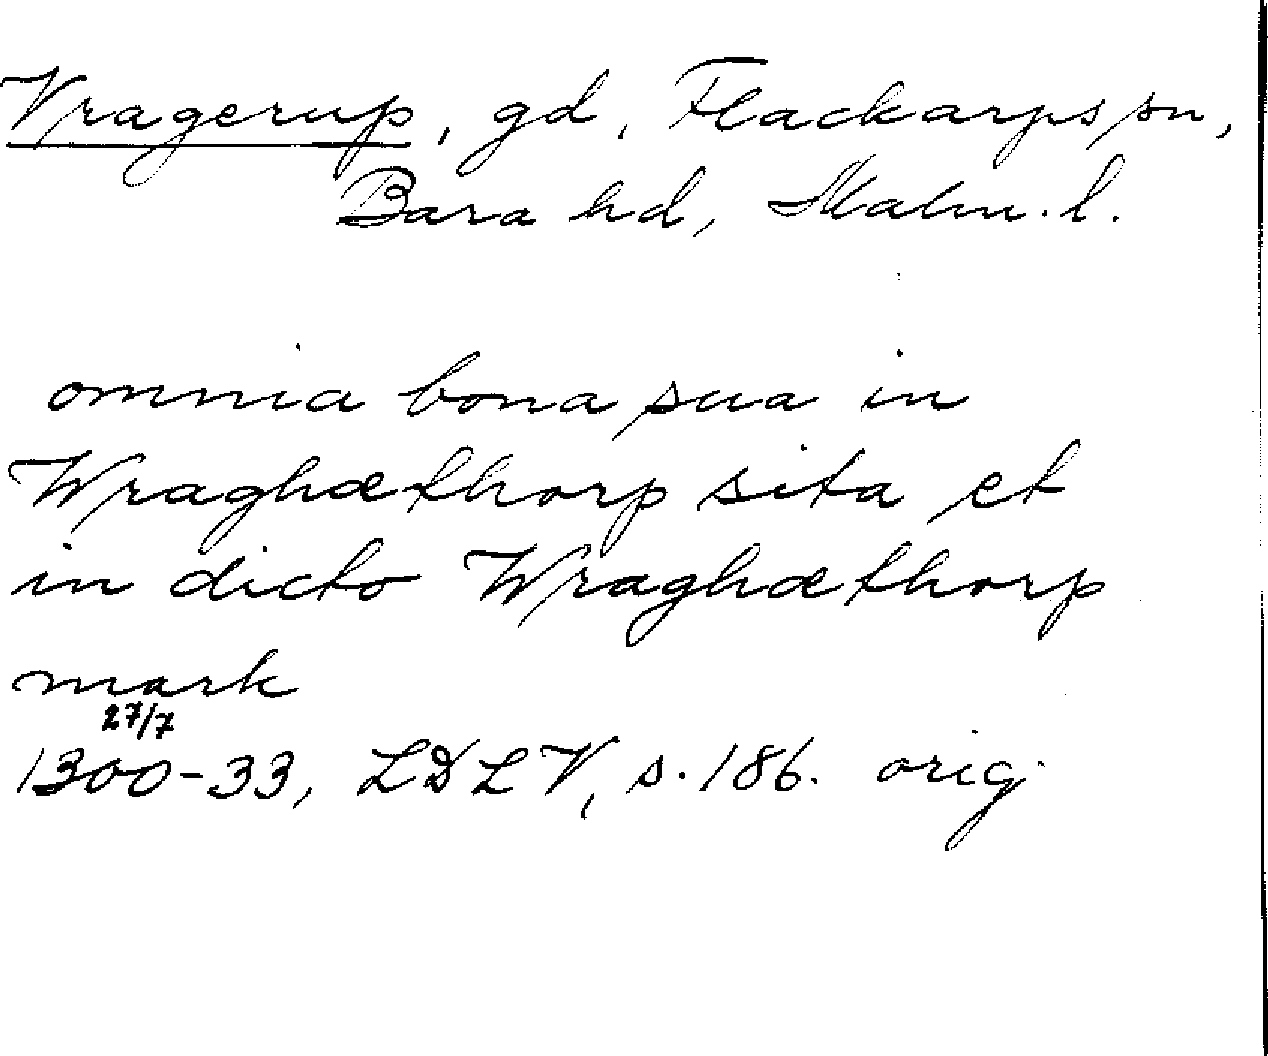 Vragerup, gd, Flackarps sn,
Bara hd, Malm. l.
omnia bona sua in
Wraghæthorp sita et
in dicto Wraghæthorp
mark
27/7
1300-33, LDLV, s. 186. orig.